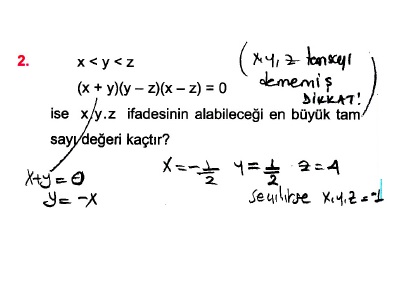 2. x < y < z
(x + y)(y – z)(x – z) = 0
ise x.y.z ifadesinin alabileceği en büyük tam
sayı değeri kaçtır?
(x, y, z tamsayı
dememiş
DİKKAT!)
x+y = 0
y = -x
x = -1/2 y = 1/2 z = 4
seçilirse x.y.z = -1